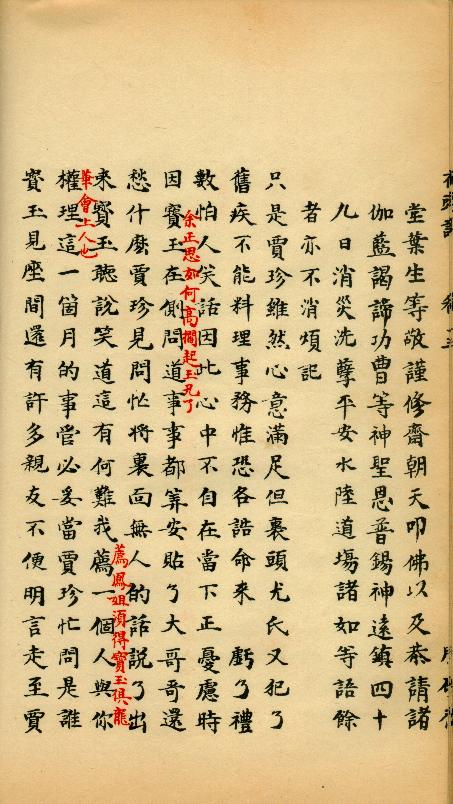 堂葉生等敬謹修齋朝天叩佛以及恭請諸
伽藍謁諦功曹等神聖恩普錫神遠鎮四十
九日消災洗孽平安水陸道場諸如等語餘
者亦不消煩記
只是賈珍雖然心意滿足但裏頭尤氏又犯了
舊疾不能料理事務惟恐各誥命來虧了禮
數怕人笑話因此心中不自在當下正憂慮時
余正思如何高擱起玉兄了
因寶玉在側問道事事都算安貼了大哥哥還
愁什麽賈珍見問忙將裏面無人的話說了出
薦鳳姐須得寶玉俱龍
華會上人也
來寶玉聽說笑道這有何難我薦一個人與你
權理這一箇月的事管必妥當賈珍忙問是誰
寶玉見座間還有許多親友不便明言走至賈